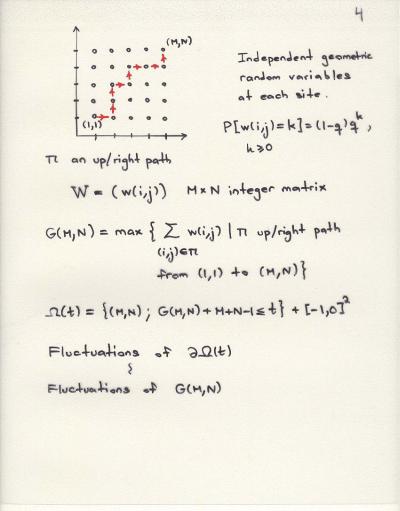 4
(M,N)
(1,1)
Independent geometric
random variables
at each site.
P[w(i,j)=k]=(1-q)q^k,
k≥0
π an up/right path
W = (w(i,j)) M×N integer matrix
G(M,N) = max { Σ w(i,j) | π up/right path
(i,j)∈π
from (1,1) to (M,N)}
Ω(t) = {(M,N) ; G(M,N)+M+N-1≤t} + [-1,0]^2
Fluctuations of ∂Ω(t)
Fluctuations of G(M,N)